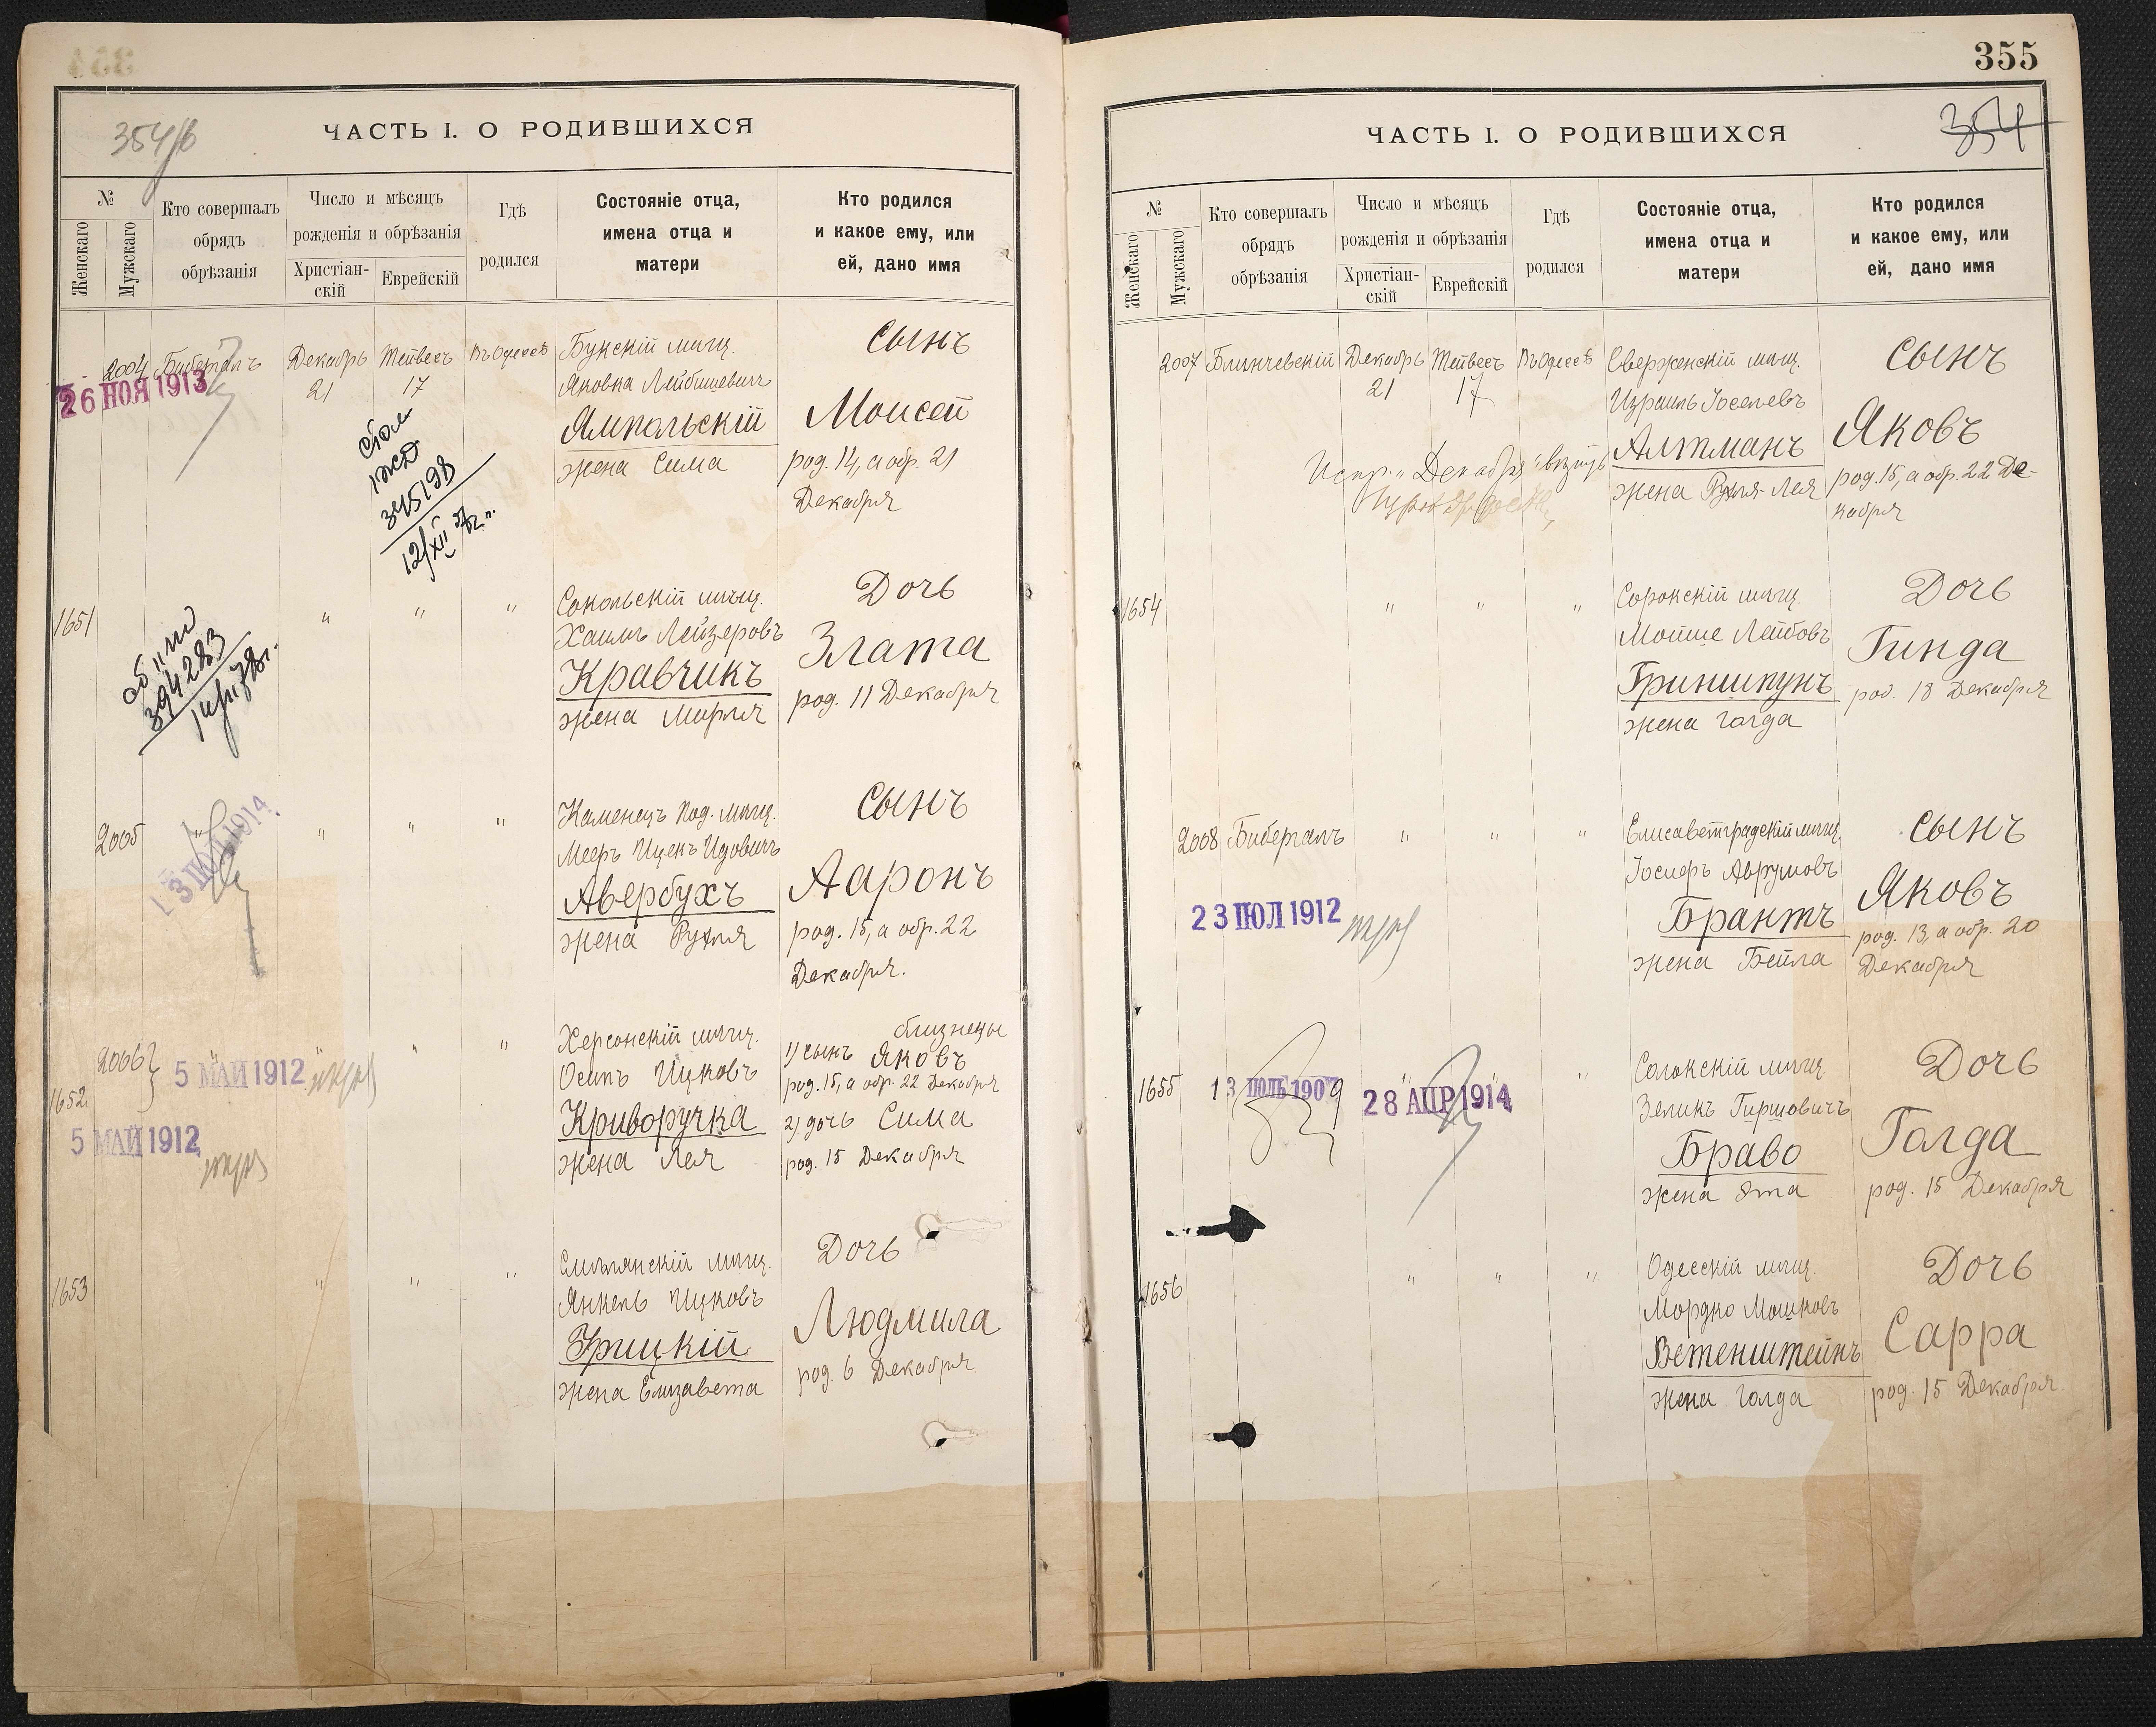 354/б
ЧАСТЬ I. О РОДИВШИХСЯ
№
Женскаго
Мужскаго
Кто совершалъ
обрядъ
обрѣзанія
Число и мѣсяцъ
рожденія и обрѣзанія
Христіан-
скій
Еврейскій
Гдѣ
родился
Состояніе отца,
имена отца и
матери
Кто родился
и какое ему, или
ей, дано имя
2004 Бибергалъ Декабрь Тейвесъ Въ Одессѣ
21 17
26 НОЯ 1913
Букскій мѣщ.
Яковка Лейбишевичъ
Ямпольскій
жена Сима
Сынъ
Моисей
род. 14, а обр. 21
Декабря
345198
1651 " " "
394283
Сокольскій мѣщ.
Хаимъ Лейзеровъ
Кравчикъ
жена Мирля
Дочь
Злата
род. 11 Декабря
2005 " " " "
13 ІЮЛ 1914
Каменецъ Под. мѣщ.
Мееръ Ицекъ Идовичъ
Авербухъ
жена Рухля
Сынъ
Ааронъ
род. 15, а обр. 22
Декабря.
2006 " " " "
1652
5 МАЙ 1912
5 МАЙ 1912
Херсонскій мѣщ.
Осипъ Ицковъ
Криворучка
жена Лея
близнецы
1) сынъ Яковъ
род. 15, а обр. 22 Декабря
2) дочь Сима
род. 15 Декабря
1653 " " "
Смѣлянскій мѣщ.
Янкель Ицковъ
Урицкій
жена Елизавета
Дочь
Людмила
род. 6 Декабря
355
354
ЧАСТЬ I. О РОДИВШИХСЯ
№
Женскаго
Мужскаго
Кто совершалъ
обрядъ
обрѣзанія
Число и мѣсяцъ
рожденія и обрѣзанія
Христіан-
скій
Еврейскій
Гдѣ
родился
Состояніе отца,
имена отца и
матери
Кто родился
и какое ему, или
ей, дано имя
2007 Блинчевскій Декабрь Тейвесъ Въ Одессѣ
21 17
Испр. "Декабря"
Сверженскій мѣщ.
Израиль Іоселевъ
Алтманъ
жена Рухля-Лея
Сынъ
Яковъ
род. 15, а обр. 22 Де-
кабря
1654 " " "
Сорокскій мѣщ.
Мойше Лейбовъ
Гриншпунъ
жена Голда
Дочь
Гинда
род. 18 Декабря
2008 Бибергалъ " " "
23 ІЮЛ 1912
Елисаветградскій мѣщ.
Іосифъ Аврумовъ
Брантъ
жена Бейла
Сынъ
Яковъ
род. 13, а обр. 20
Декабря
1655 " " "
13 ІЮЛЬ 1909
28 АПР 1914
Солокскій мѣщ.
Зеликъ Гиршовичъ
Браво
жена Эта
Дочь
Голда
род. 15 Декабря
1656 " " "
Одесскій мѣщ.
Мордко Мошковъ
Ветенштейнъ
жена Голда
Дочь
Сарра
род. 15 Декабря